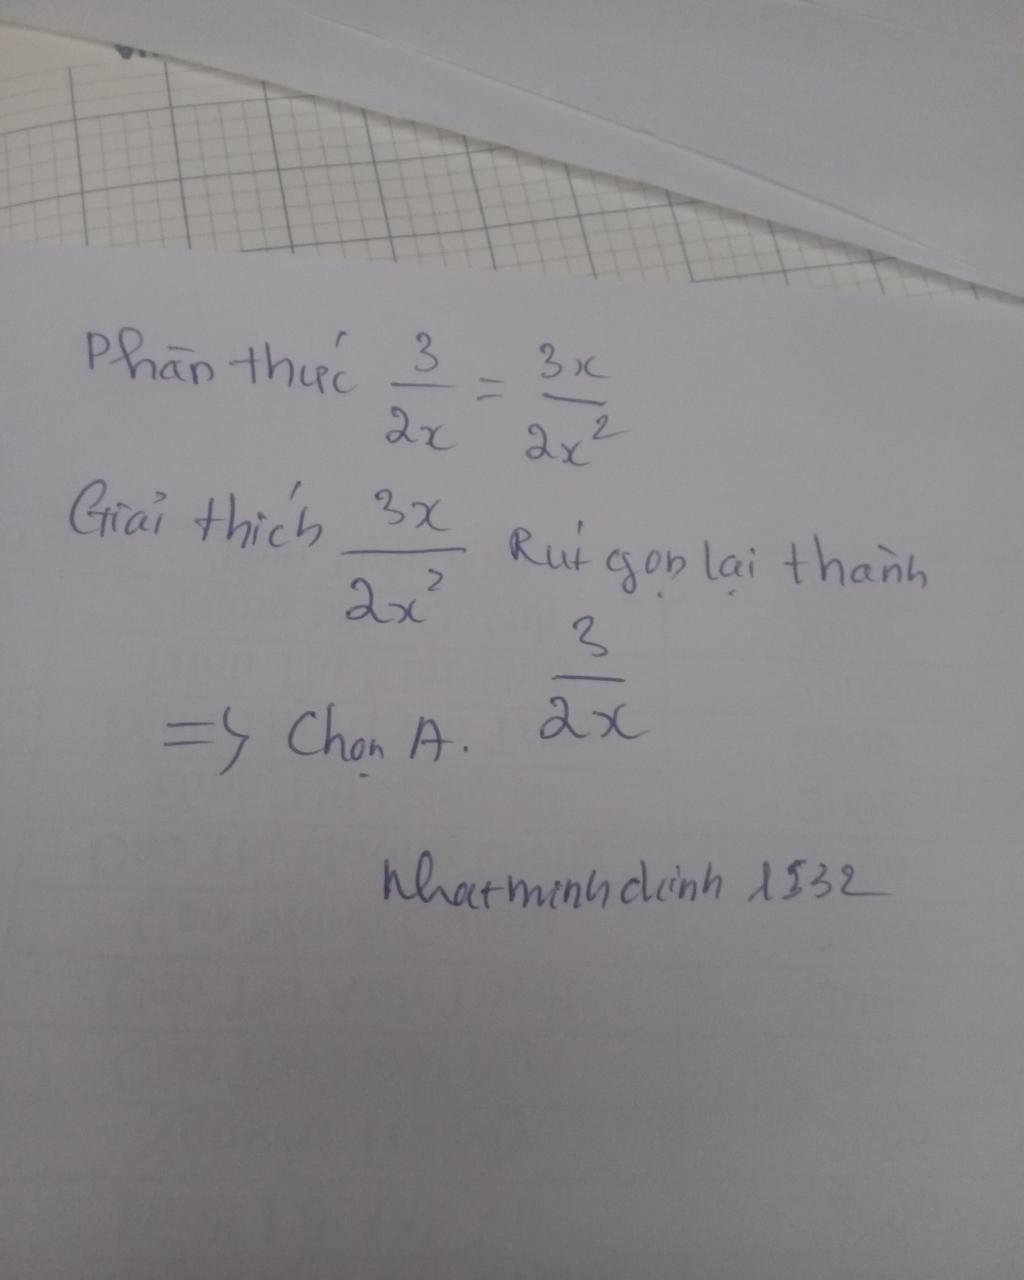 Phân thức 3/2x = 3x/2x²
Giải thích 3x/2x² Rút gọn lại thành
3/2x
=> Chọn A.
nhatminhdinh 1532